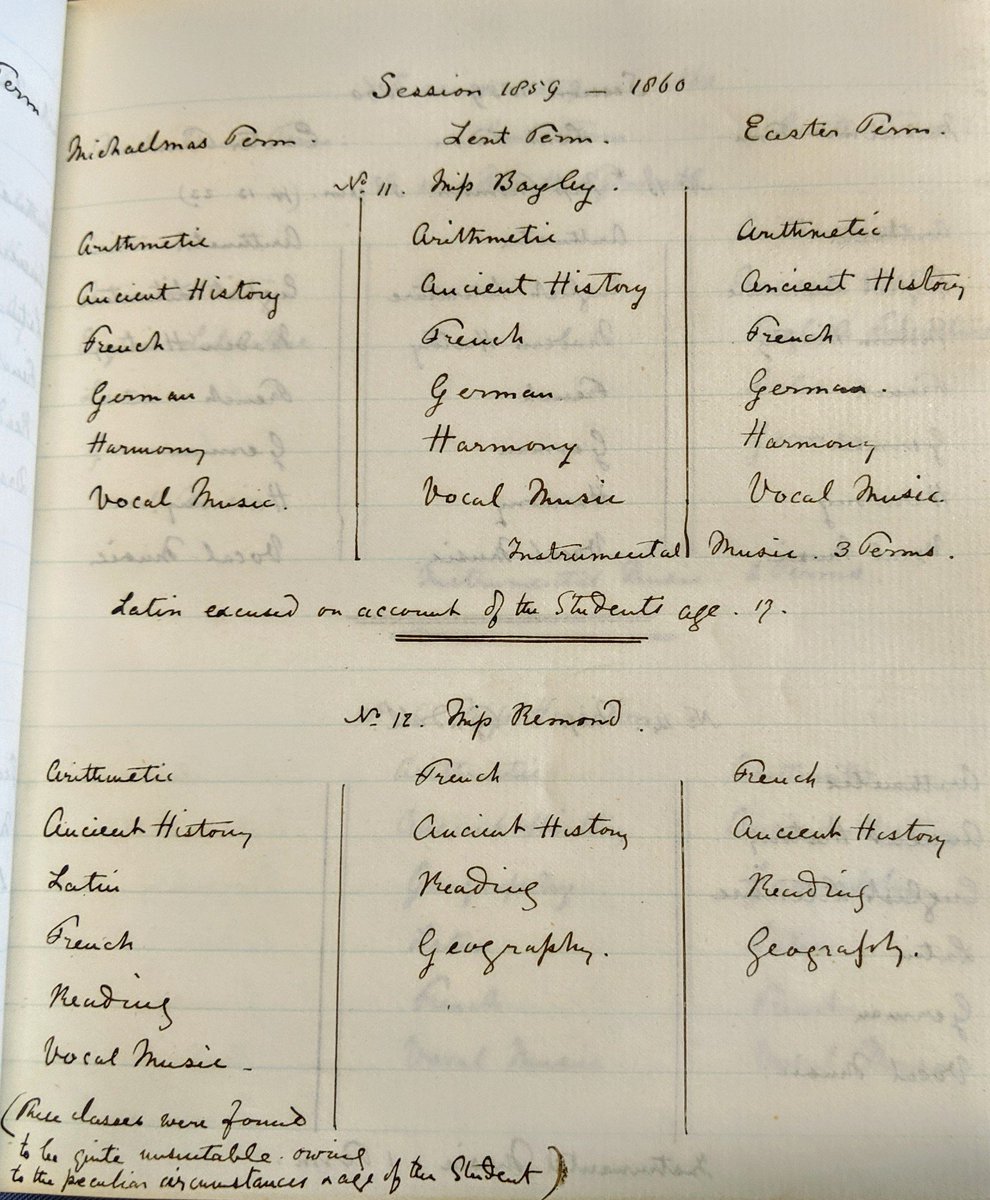 Term
Session 1859 — 1860
Michaelmas Term. Lent Term. Easter Term.
No. 11. Miss Bayley.
Arithmetic Arithmetic Arithmetic
Ancient History Ancient History Ancient History
French French French
German German German.
Harmony Harmony Harmony
Vocal Music. Vocal Music Vocal Music.
Instrumental Music. 3 Terms.
Latin excused on account of the Students age. 17.
No. 12. Miss Remond.
Arithmetic French French
Ancient History Ancient History Ancient History
Latin Reading Reading
French Geography. Geography.
Reading
Vocal Music.
(These classes were found
to be quite unsuitable owing
to the peculiar circumstances & age of the Student)